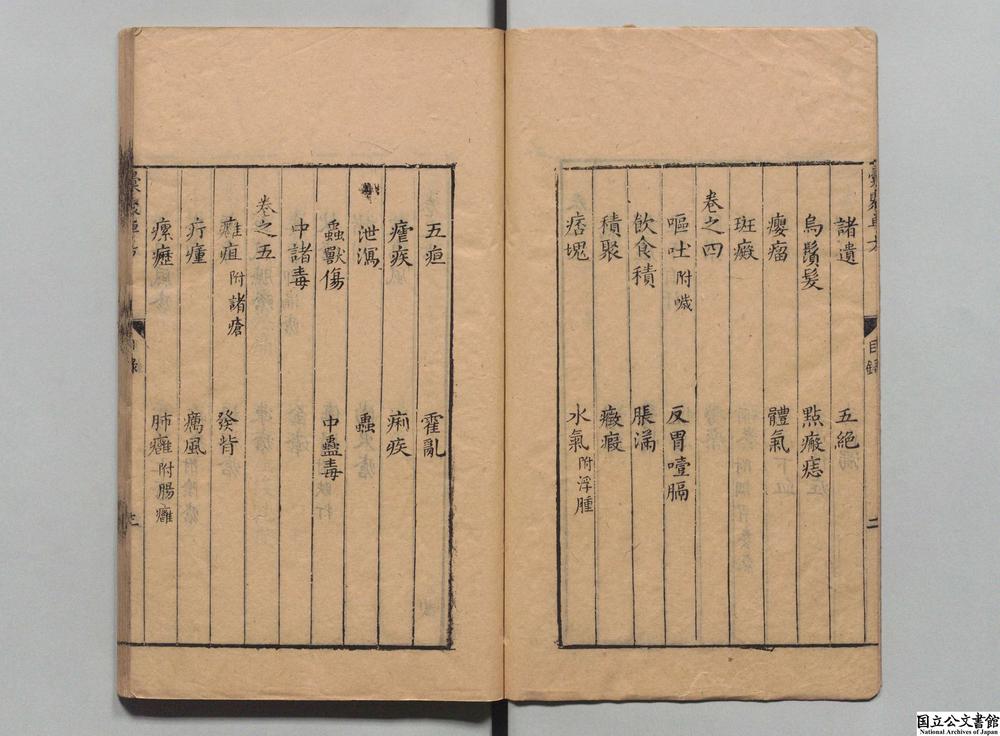 諸遺 五絕
烏鬚髮 點瘢痣
癭瘤 體氣
斑癜
卷之四
嘔吐附噦 反胃噎膈
飲食積 脹滿
積聚 癥瘕
痞塊 水氣附浮腫
目錄 二
五疸 霍亂
瘧疾 痢疾
泄瀉 蟲
蟲獸傷 中蠱毒
中諸毒
卷之五
癰疽附諸瘡 發背
疔瘇 癘風
瘰癧 肺癰附腸癰
目錄
国立公文書館
National Archives of Japan